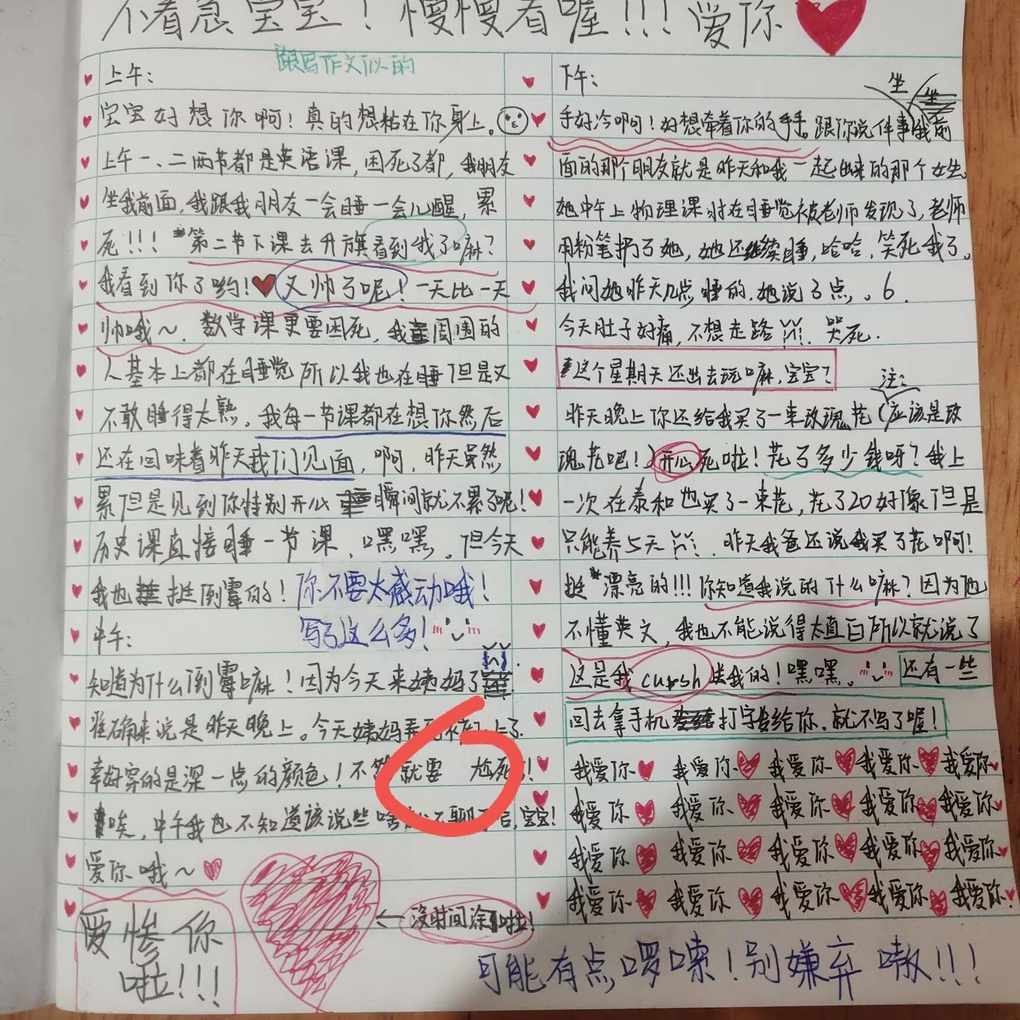 不着急宝宝！慢慢看喔!!!爱你
跟写作文似的
上午：
宝宝好想你啊！真的想粘在你身上。
上午一、二两节都是英语课，困死了都，我朋友
坐我前面，我跟我朋友一会睡一会儿醒，累
死!!!第二节下课去升旗看到我了嘛？
我看到你了哟！又帅了呢！一天比一天
帅哦～。数学课更要困死，我周围的
人基本上都在睡觉所以我也在睡但是又
不敢睡得太熟，我每一节课都在想你然后
还在回味着昨天我们见面，啊，昨天虽然
累但是见到你特别开心瞬间就不累了呢！
历史课直接睡一节课，嘿嘿。但今天
我也挺倒霉的！你不要太感动哦！
写了这么多！
中午：
知道为什么倒霉嘛！因为今天来姨妈了
准确来说是昨天晚上。今天姨妈弄 上了.
幸好穿的是深一点的颜色！不 就要 尬死 ！
唉，中午我也不知道该说些啥 不聊了 宝宝！
爱你哦～
爱惨你
啦!!!
←没时间涂啦！
下午：
坐
手好冷啊！好想牵着你的手。跟你说件事我前
面的那个朋友就是昨天和我一起出来的那个女生
她中午上物理课时在睡觉被老师发现了，老师
用粉笔扔了她，她还继续睡，哈哈，笑死我了。
我问她昨天几点睡的，她说3点。6.
今天肚子好痛，不想走路!!! 哭死.
这个星期天还出去玩嘛，宝宝？
注：
昨天晚上你还给我买了一束玫瑰花（应该是玫
瑰花吧！）开心死啦！花了多少钱呀？我上
一次在泰和也买了一束花，花了20好像但是
只能养5天 昨天我爸还说我买了花啊！
挺漂亮的!!!你知道我说的什么嘛？因为他
不懂英文，我也不能说得太直白所以就说了
这是我cursh送我的！嘿嘿。还有一些
回去拿手机打字给你，就不写了喔！
我爱你 我爱你 我爱你 我爱你 我爱你
我爱你 我爱你 我爱你 我爱你 我爱你
我爱你 我爱你 我爱你 我爱你 我爱你
我爱你 我爱你 我爱你 我爱你 我爱你
可能有点啰嗦！别嫌弃嗷!!!